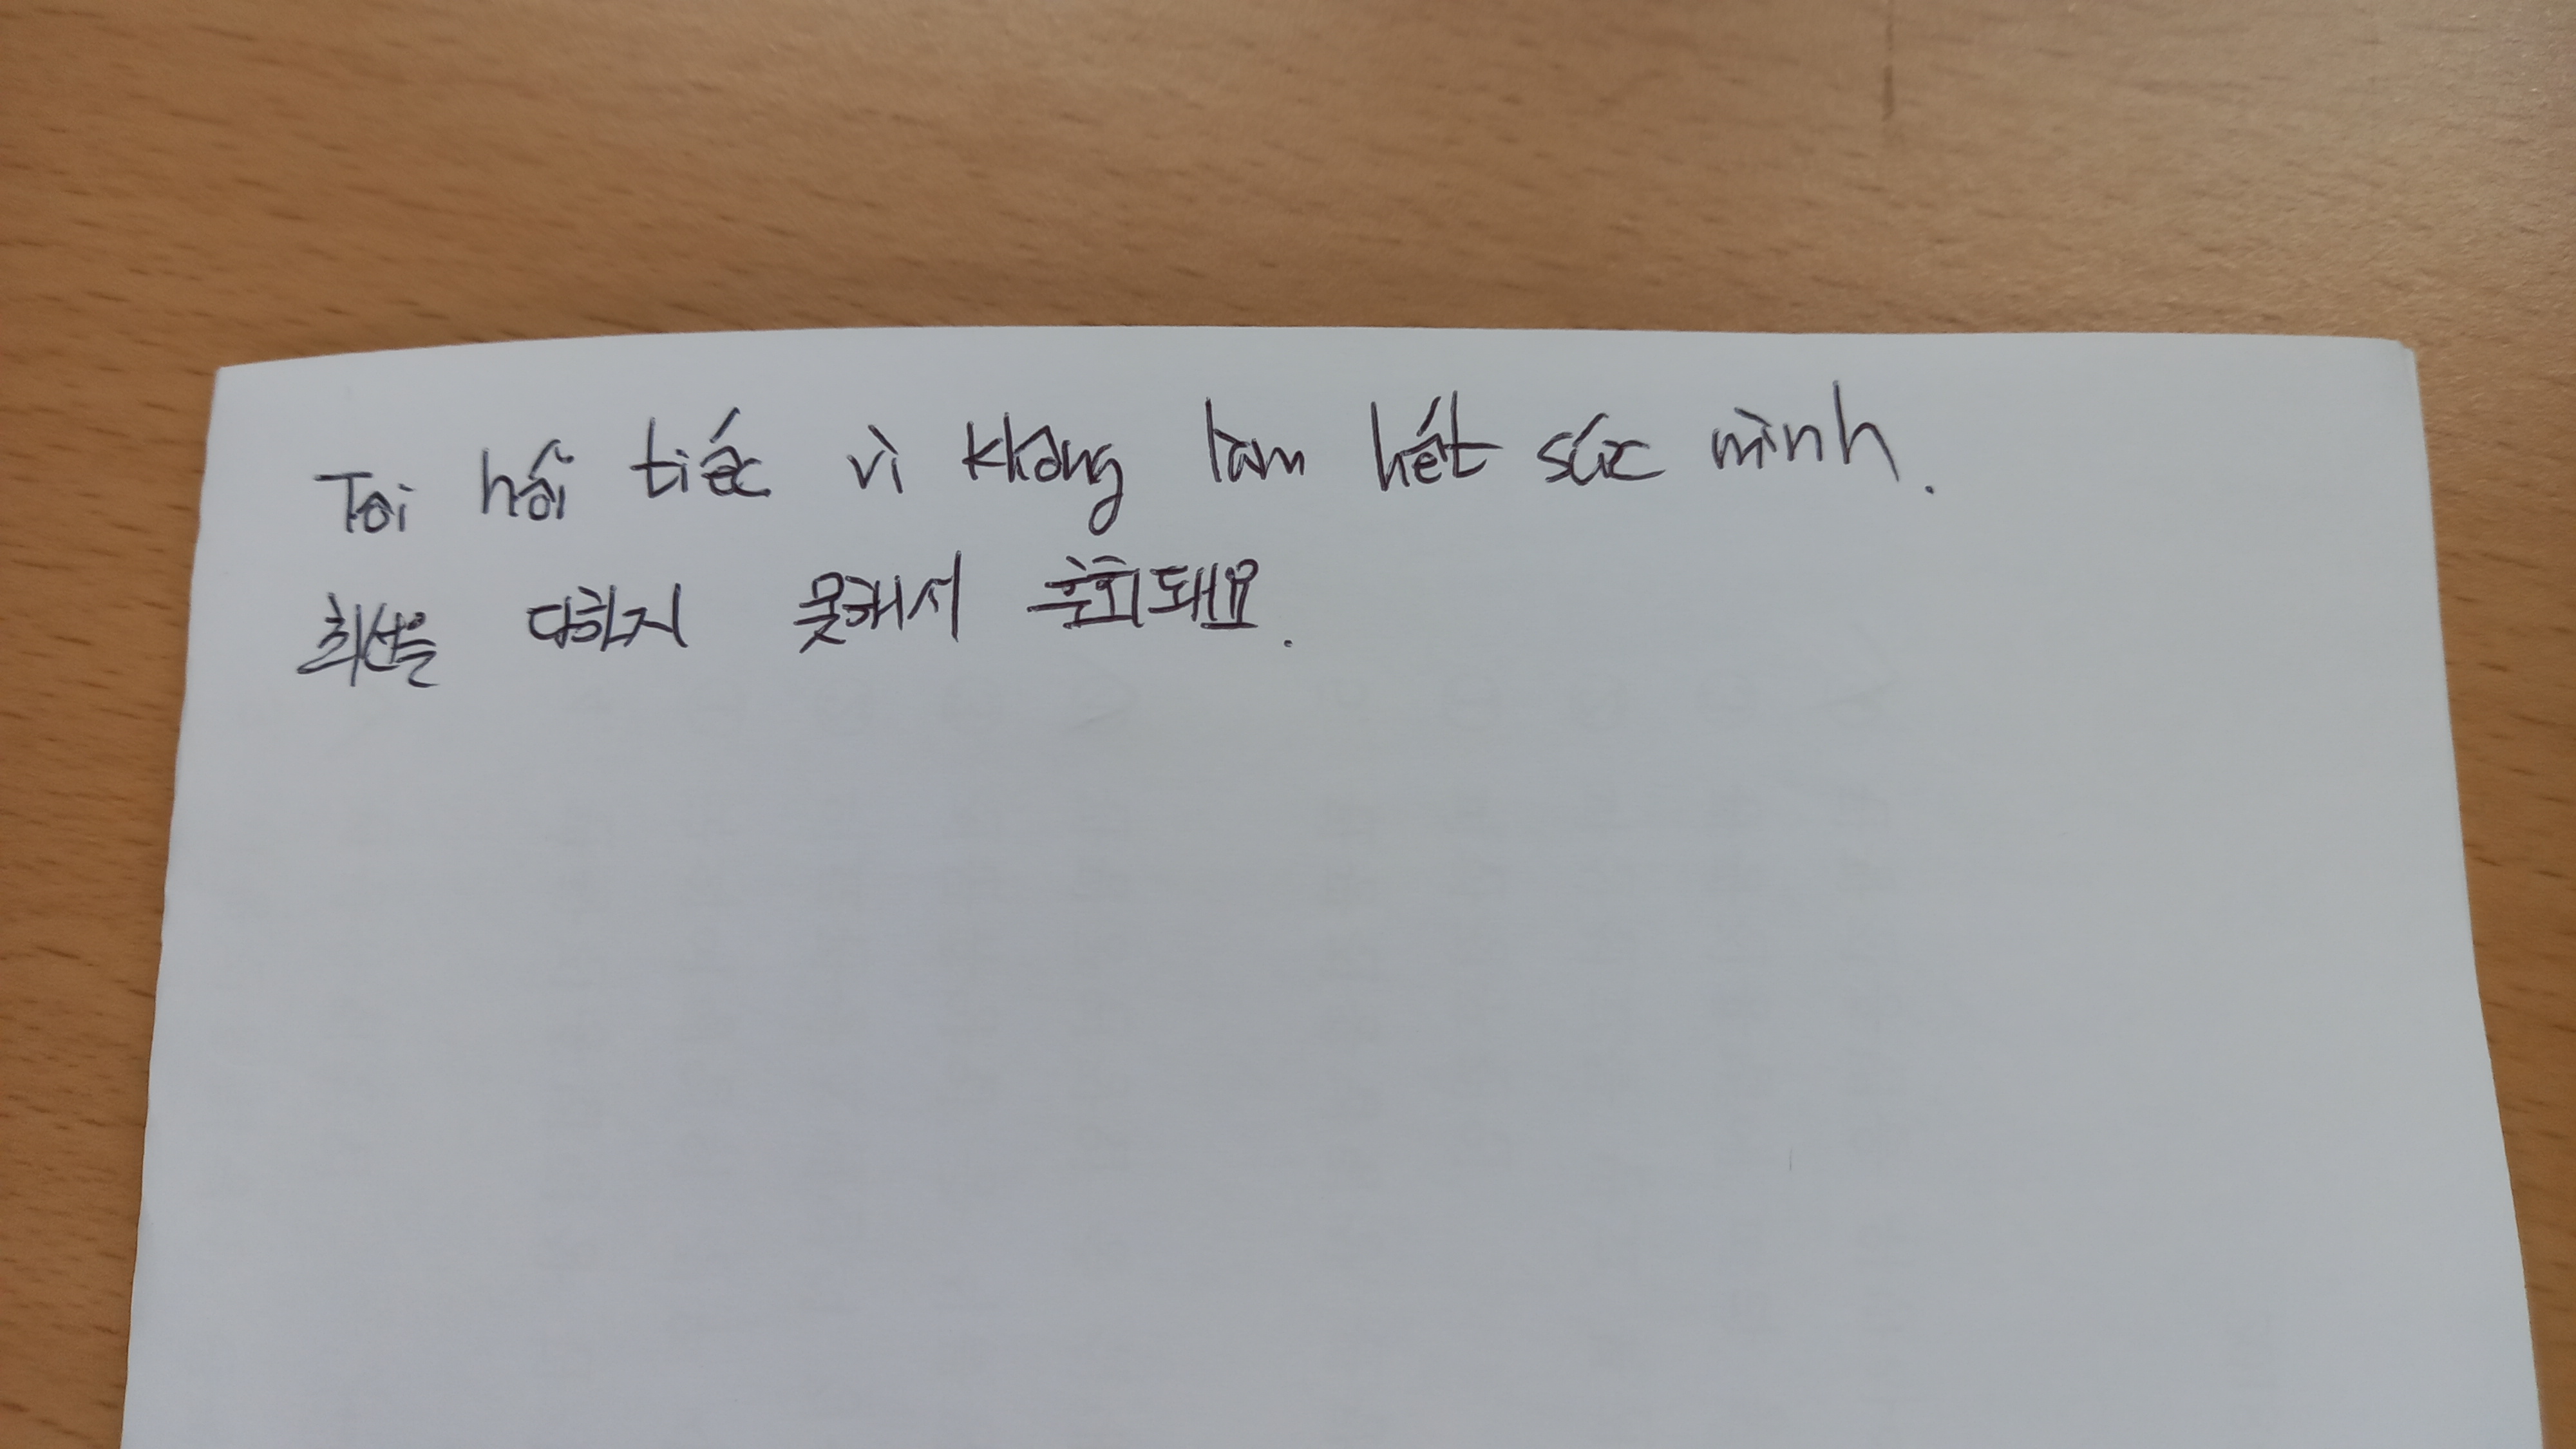 Tôi hối tiếc vì không làm hết sức mình.
최선을 다하지 못해서 후회돼요.